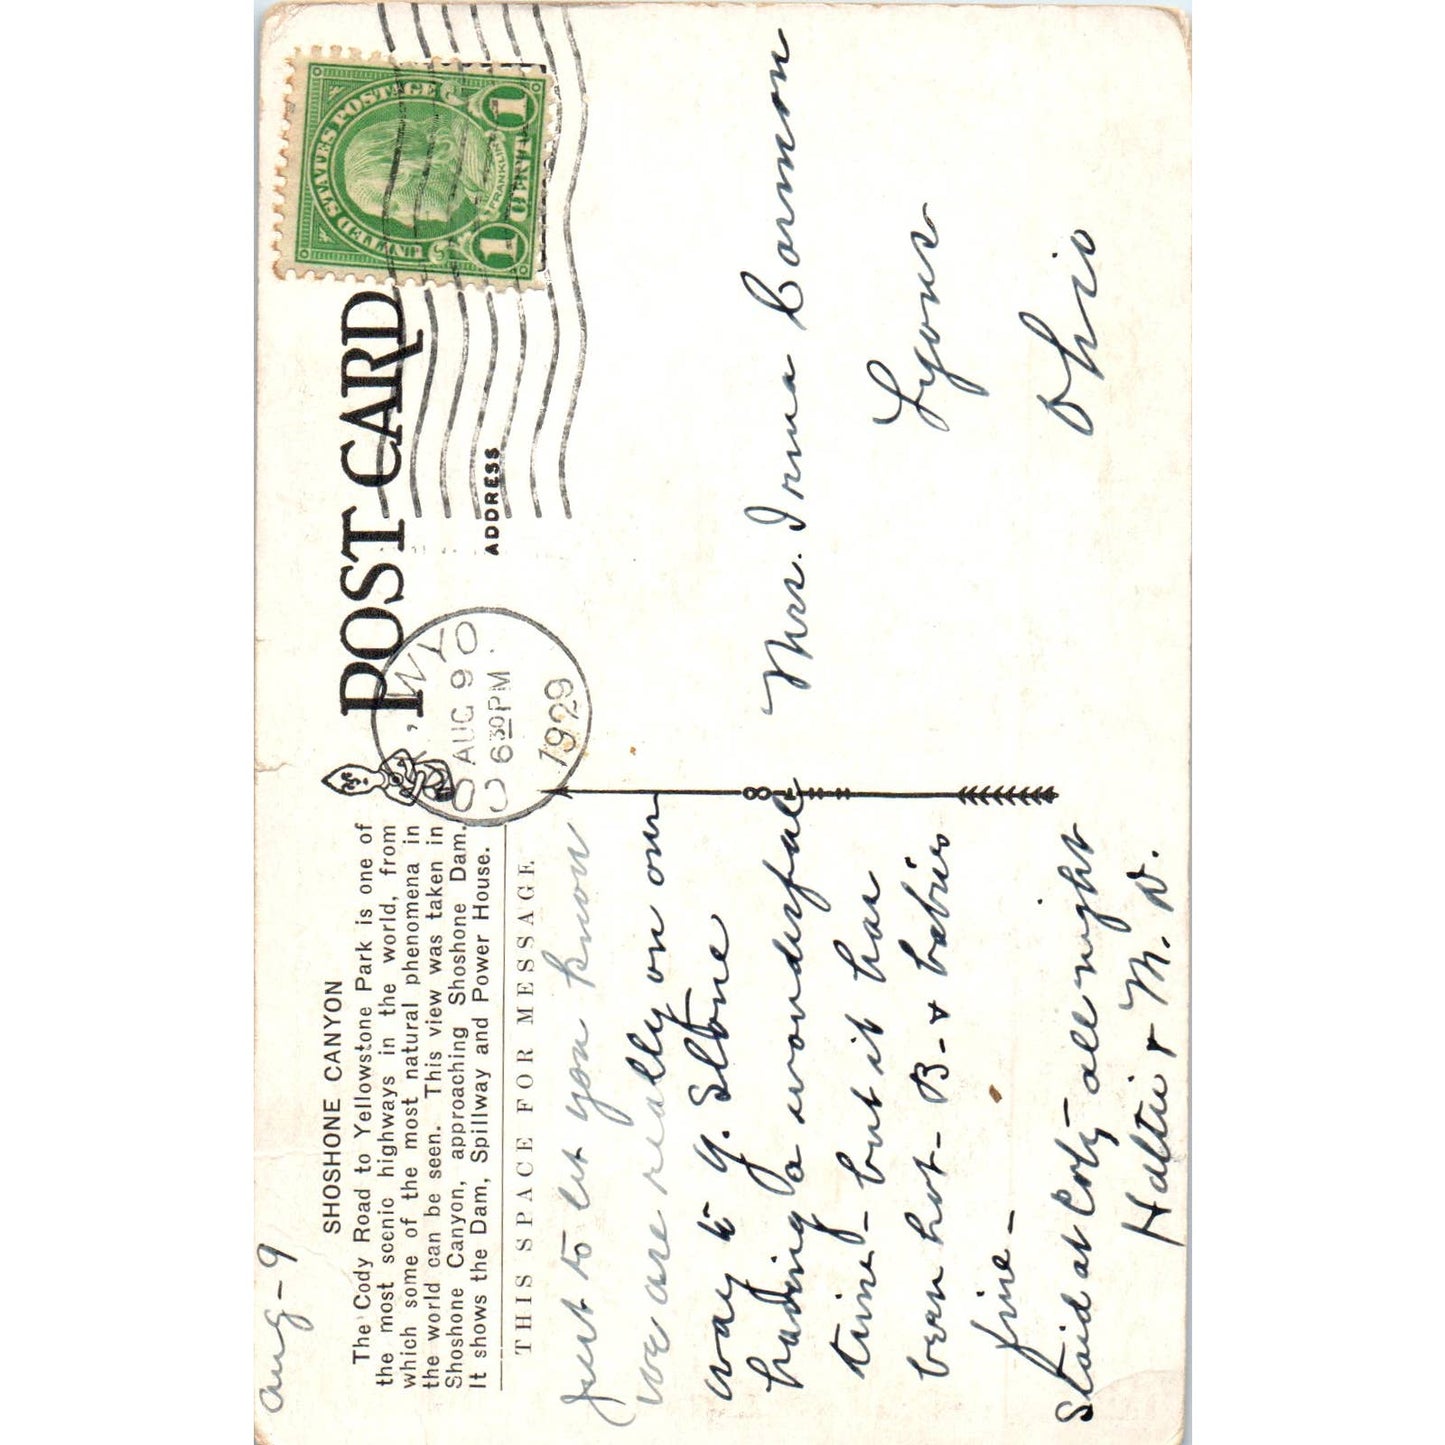 Aug-9
SHOSHONE CANYON
The Cody Road to Yellowstone Park is one of
the most scenic highways in the world, from
which some of the most natural phenomena in
the world can be seen. This view was taken in
Shoshone Canyon, approaching Shoshone Dam.
It shows the Dam, Spillway and Power House.
THIS SPACE FOR MESSAGE
Just to let you know
we are really on our
way to Y. Stone
having a wonderful
time - but it has
been hot - B - & babies
fine -
Staid at Cody all night
Hattie & M. D.
POST CARD
ADDRESS
WYO
AUG 9
6 30 PM
1929
UNITED STATES POSTAGE
FRANKLIN
1 CENT 1
Mrs. Irma Cormon
Lyons
Ohio